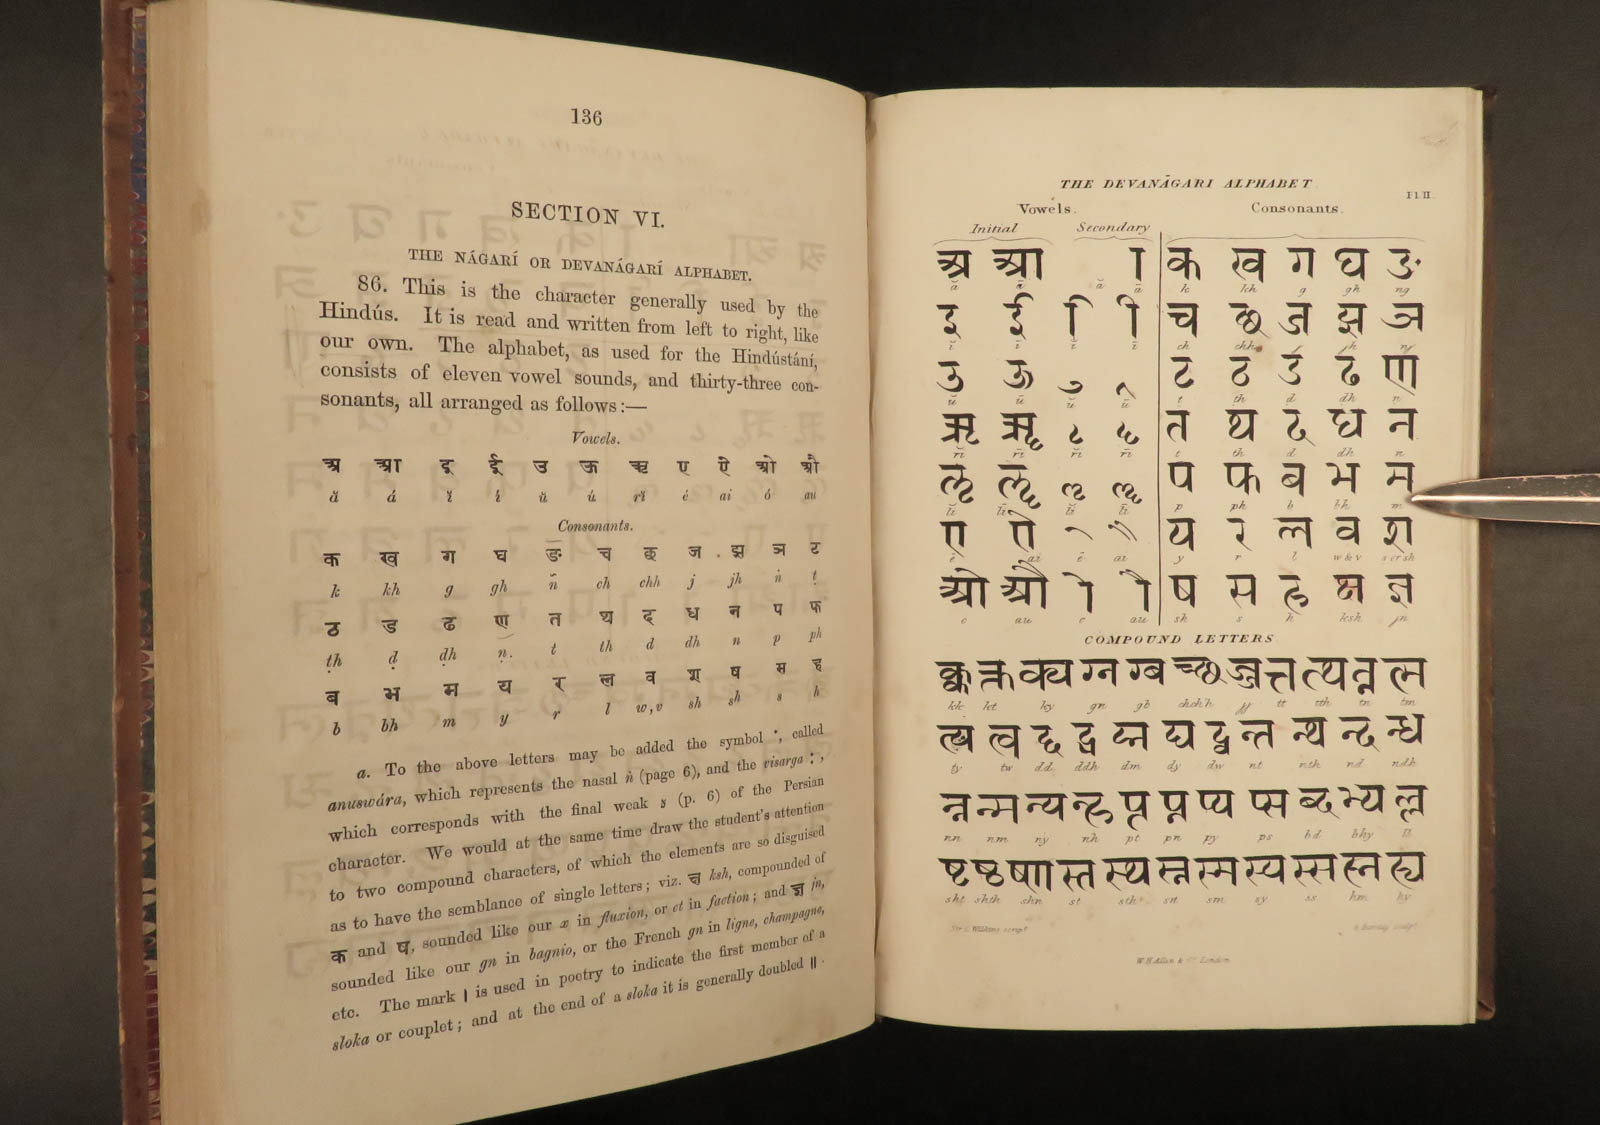 136
SECTION VI.
THE NÁGARÍ OR DEVANÁGARÍ ALPHABET.
86. This is the character generally used by the
Hindús. It is read and written from left to right, like
our own. The alphabet, as used for the Hindústání,
consists of eleven vowel sounds, and thirty-three con-
sonants, all arranged as follows:—
Vowels.
अ आ इ ई उ ऊ ऋ ए ऐ ओ औ
ă á ĭ í ŭ ú rĭ é ai ó au
Consonants.
क ख ग घ ङ च छ ज झ ञ ट
k kh g gh ñ ch chh j jh ṅ ṭ
ठ ड ढ ण त थ द ध न प फ
ṭh ḍ ḍh ṇ. t th d dh n p ph
ब भ म य र ल व श ष स ह
b bh m y r l w,v sh sh s h
a. To the above letters may be added the symbol ˙, called
anuswára, which represents the nasal ñ (page 6), and the visarga : ,
which corresponds with the final weak ه (p. 6) of the Persian
character. We would at the same time draw the student's attention
to two compound characters, of which the elements are so disguised
as to have the semblance of single letters; viz. क्ष ksh, compounded of
क and ष, sounded like our x in fluxion, or ct in faction; and ज्ञ jn,
sounded like our gn in bagnio, or the French gn in ligne, champagne,
etc. The mark । is used in poetry to indicate the first member of a
sloka or couplet; and at the end of a sloka it is generally doubled ॥.
THE DEVANĀGARI ALPHABET
Pl II.
Vowels. Consonants.
Initial Secondary
अ आ ा क ख ग घ ङ
ă ā ă ā k kh g gh ng
इ ई ि ी च छ ज झ ञ
ĭ ī ĭ ī ch chh j jh ñ
उ ऊ ु ू ट ठ ड ढ ण
ŭ ū ŭ ū t th d dh n
ऋ ॠ ृ ॄ त थ द ध न
rĭ rī rĭ rī t th d dh n
ऌ ॡ ॢ ॣ प फ ब भ म
lĭ lī lĭ lī p ph b bh m
ए ऐ े ै य र ल व श
ē ai ē ai y r l w & v s or sh
ओ औ ो ौ ष स ह क्ष ज्ञ
o au o au sh s h ksh jn
COMPOUND LETTERS
क्क क्त क्य ग्न ग्ब च्छ ज्ज त्त त्थ त्न त्म
kk kt ky gn gb chch'h jj tt tth tn tm
त्य त्व द्द द्ध द्म द्य द्व न्त न्थ न्द न्ध
ty tw dd ddh dm dy dw nt nth nd ndh
न्न न्म न्य न्ह प्त प्न प्य प्स ब्द भ्य ल्ल
nn nm ny nh pt pn py ps bd bhy ll
ष्ट ष्ठ ष्ण स्त स्थ स्न स्म स्य स्स ह्न ह्य
sht shth shn st sth sn sm sy ss hm hy
Sir C. Wilkins scripst.
W.H. Allen & Co. London.